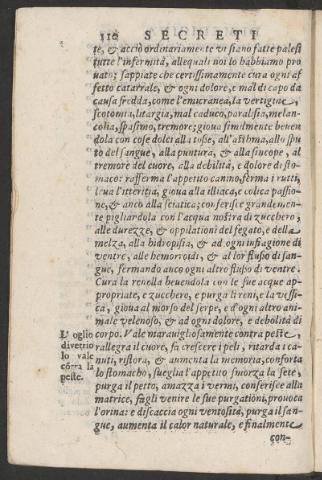 110 SECRETI
te, & acciò ordinariamente vi siano fatte palesi
tutte l'infermità, allequali noi lo habbiamo pro
uato; sappiate che certissimamente cura ogni af
fetto catarrale, & ogni dolore, e mal di capo da
causa fredda, come l'emicranea, la vertigine,
scotomia, litargia, mal caduco, paralisia, melan-
colia, spasimo, tremore; gioua similmente beuen
dola con cose dolci alla tosse, all'asthma, allo spu
to del sangue, alla puntura, & alla sincope, al
tremore del cuore, alla debilità, e dolore di sto-
maco: rafferma l'appetito canino, ferma i rutti,
leua l'itteritia, gioua alla illiaca, e colica passio
ne, & anco alla sciatica; conferisce grandemen-
te pigliandola con l'acqua nostra di zucchero,
alle durezze, & oppilationi del fegato, e della
melza, alla hidropisia, & ad ogni infiagione di
ventre, alle hemorroidi, & al lor flusso di san-
gue, fermando anco ogni altro flusso di ventre.
Cura la renella beuendola con le sue acque ap-
propriate, e zucchero, e purga li reni, e la vessi-
ca, gioua al morso del serpe, e d'ogni altro ani-
male velenoso, & ad ogni dolore, e debolità di
corpo. Vale marauigliosamente contra peste,
rallegra il cuore, fa crescere i peli, ritarda i ca-
nuti, ristora, & aumenta la memoria, conforta
lo stomacho, sueglia l'appetito smorza la sete,
purga il petto, amazza i vermi, conferisce alla
matrice, fagli venire le sue purgationi, prouoca
l'orina: e discaccia ogni ventosità, purga il san-
gue, aumenta il calor naturale, e finalmente
con-
L'oglio
di vetrio
lo vale
cõtra la
peste.